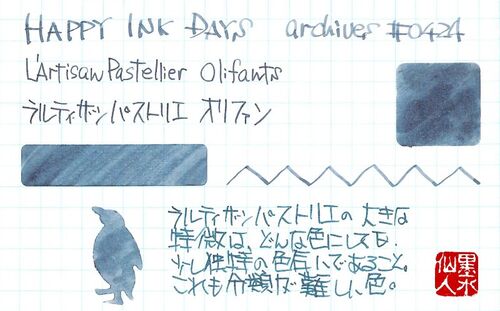 HAPPY INK DAYS archives #0424
L'Artisan Pastellier Olifants
ラルティザンパストリエ オリファン
ラルティザンパストリエの大きな
特徴は、どんな色にしても、
少し独特の色合いであること。
これも分類が難しい色。
墨水
仙人